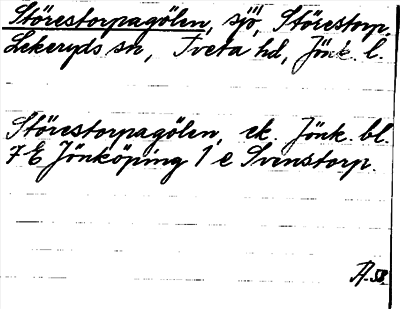 Störestorpagölen, sjö, Störestorp,
Lekeryds sn, Tveta hd, Jönk. l.
Störestorpagölen, ek. Jönk. bl.
7 E Jönköping 1 e Svenstorp.
A. 58.